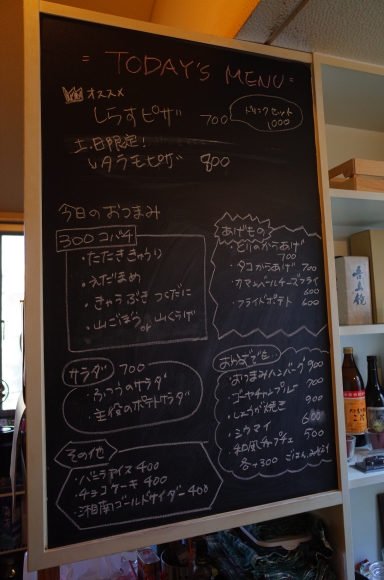 = TODAY'S MENU =
オススメ
しらすピザ 700
ドリンクセット
1000
土日限定!
タラモピザ 800
今日のおつまみ
300コバチ
・たたききゅうり
・えだまめ
・きゃらぶきつくだに
・山ごぼう or 山くらげ
あげもの
・とりのからあげ
700
・タコからあげ 700
・カマンベールチーズフライ
600
・フライドポテト 600
サラダ 700
・ふつうのサラダ
・主役のポテトサラダ
・おつまみハンバーグ 900
・ゴーヤチャンプルー 700
・しょうが焼き 900
・シウマイ 600
・和風チヂミ 500
各+300 ごはん、みそ汁
その他
・バニラアイス 400
・チョコケーキ 400
・湘南ゴールドサイダー 400